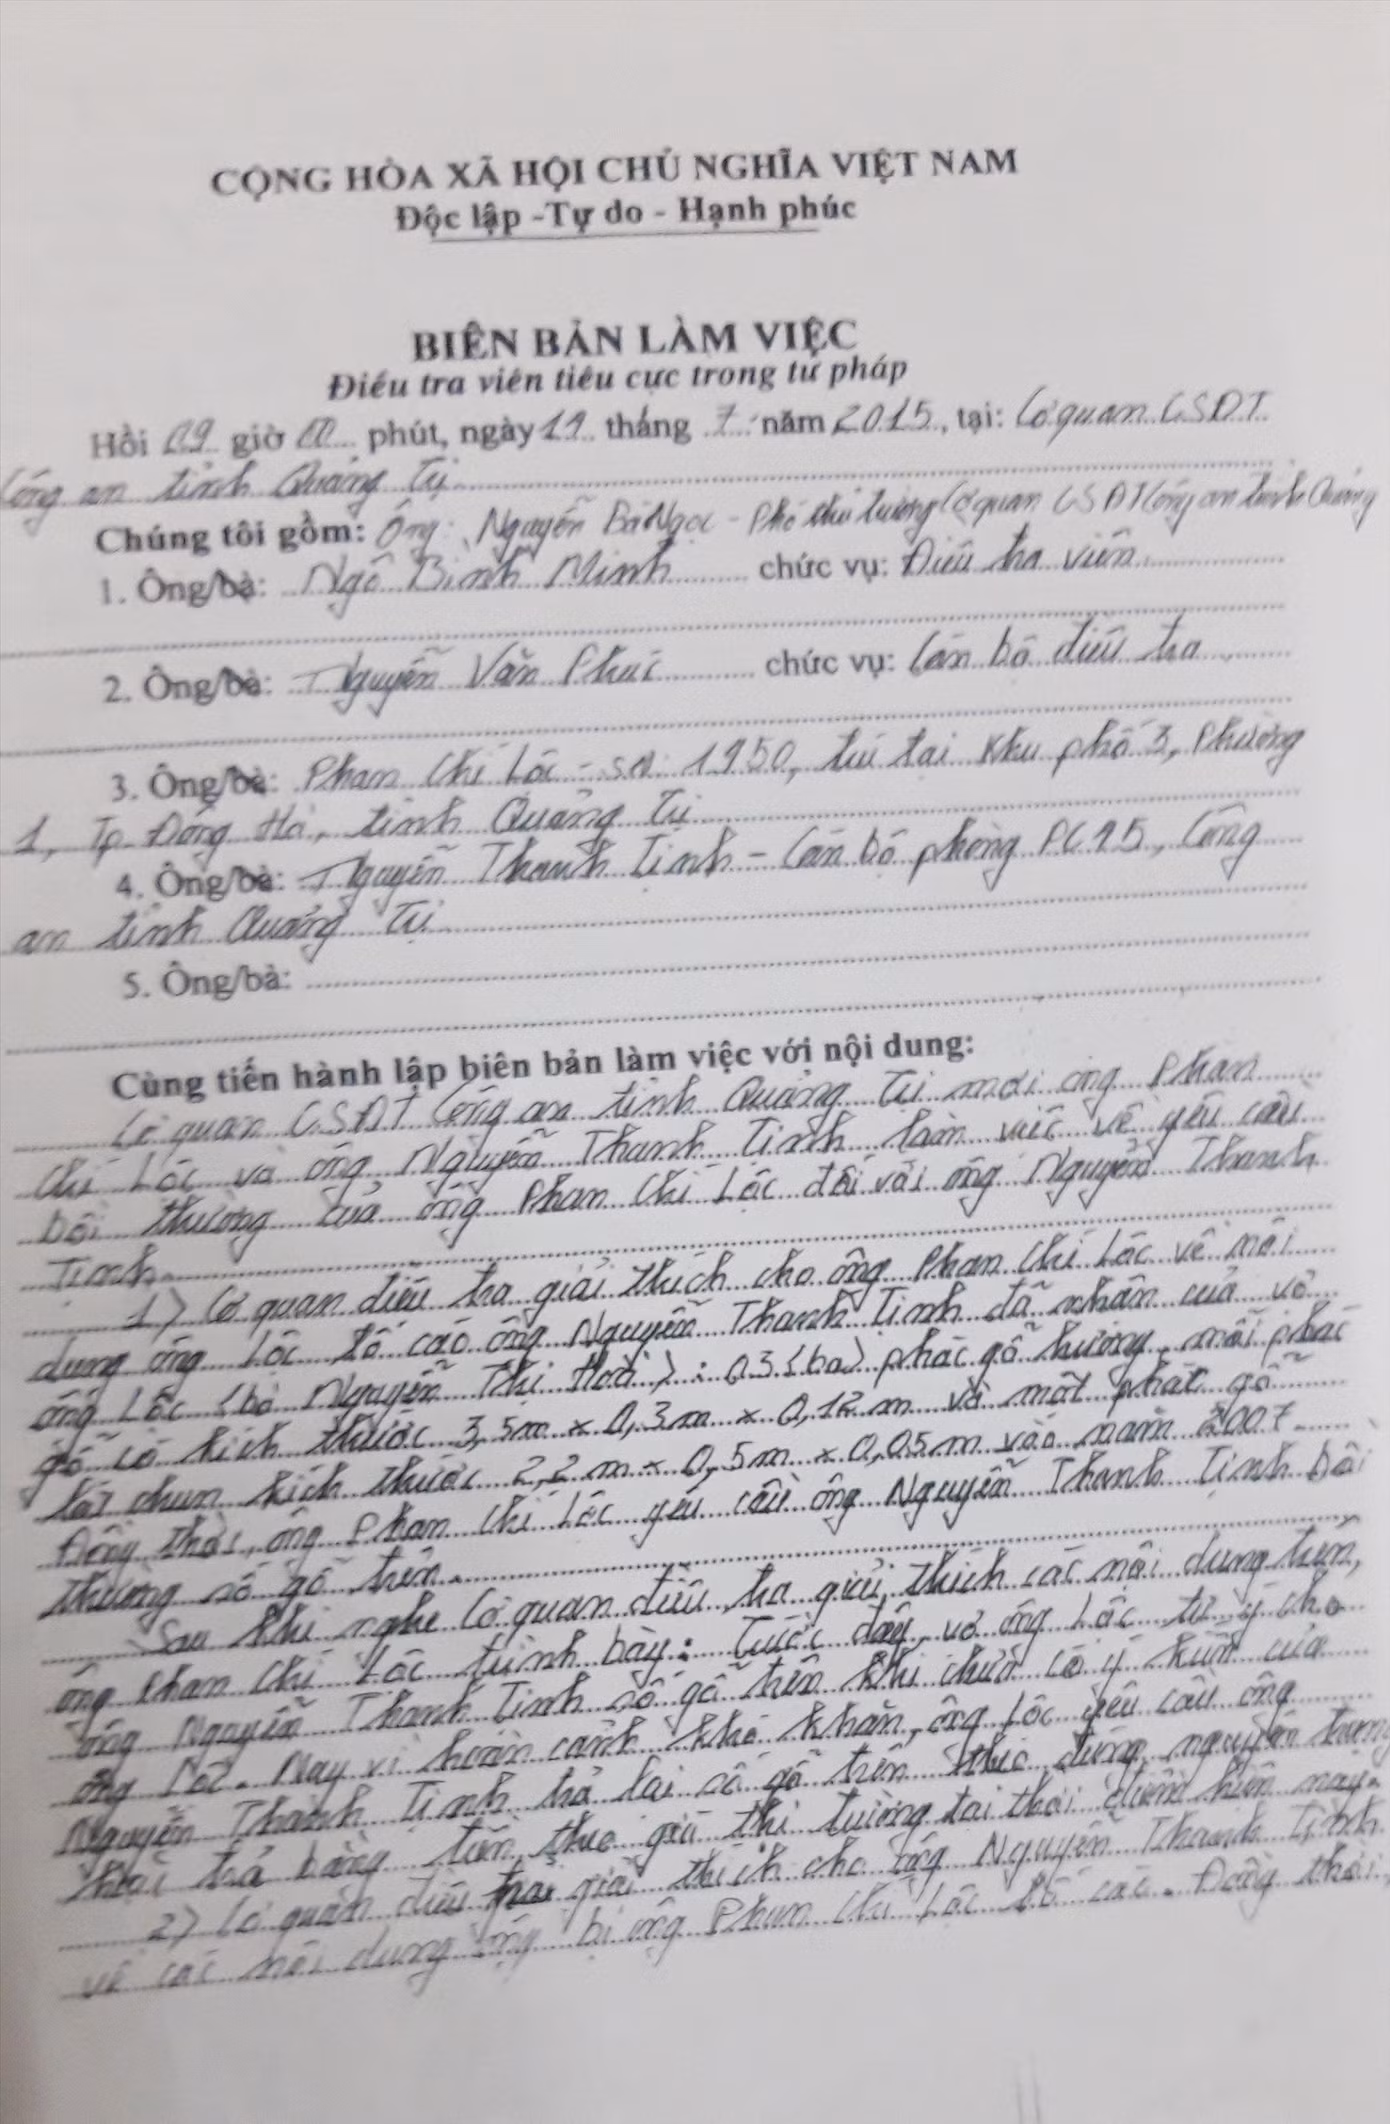 CỘNG HÒA XÃ HỘI CHỦ NGHĨA VIỆT NAM
Độc lập -Tự do - Hạnh phúc
BIÊN BẢN LÀM VIỆC
Điều tra viên tiêu cực trong tư pháp
Hồi 09 giờ 00 phút, ngày 19 tháng 7 năm 2015, tại: Cơ quan CSĐT
Công an tỉnh Quảng Trị
Chúng tôi gồm: Ông: Nguyễn Bá Ngọc - Phó thủ trưởng Cơ quan CSĐT Công an tỉnh Quảng
1. Ông/bà: Ngô Bình Minh chức vụ: Điều tra viên
2. Ông/bà: Nguyễn Văn Phúc chức vụ: Cán bộ điều tra
3. Ông/bà: Phan Chí Lộc - sn: 1950, trú tại Khu phố 3, Phường
1, Tp Đông Hà, tỉnh Quảng Trị
4. Ông/bà: Nguyễn Thanh Tịnh - Cán bộ phòng PC15, Công
an tỉnh Quảng Trị
5. Ông/bà:
Cùng tiến hành lập biên bản làm việc với nội dung:
Cơ quan CSĐT Công an tỉnh Quảng Trị mời ông Phan
Chí Lộc và ông Nguyễn Thanh Tịnh làm việc về yêu cầu
bồi thường của ông Phan Chí Lộc đối với ông Nguyễn Thanh
Tịnh
1) Cơ quan điều tra giải thích cho ông Phan Chí Lộc về nội
dung ông Lộc tố cáo ông Nguyễn Thanh Tịnh đã nhận của vợ
ông Lộc (bà Nguyễn Thị Hoà): 03 (ba) phác gỗ hương, mỗi phác
gỗ có kích thước 3,5m x 0,3m x 0,12m và một phác gỗ
kích thước 2,2m x 0,5m x 0,05m vào năm 2007
Đồng thời, ông Phan Chí Lộc yêu cầu ông Nguyễn Thanh Tịnh bồi
thường số gỗ trên.
Sau khi nghe Cơ quan điều tra giải thích các nội dung trên,
ông Phan Chí Lộc trình bày: Trước đây, vợ ông Lộc tự ý cho
ông Nguyễn Thanh Tịnh số gỗ trên khi chưa có ý kiến của
ông Lộc. Nay vì hoàn cảnh khó khăn, ông Lộc yêu cầu ông
Nguyễn Thanh Tịnh trả lại số gỗ trên theo đúng nguyên trạng
hoặc trả bằng tiền theo giá thị trường tại thời điểm hiện nay.
2) Cơ quan điều tra giải thích cho ông Nguyễn Thanh Tịnh
về các nội dung ông bị ông Phan Chí Lộc tố cáo. Đồng thời,